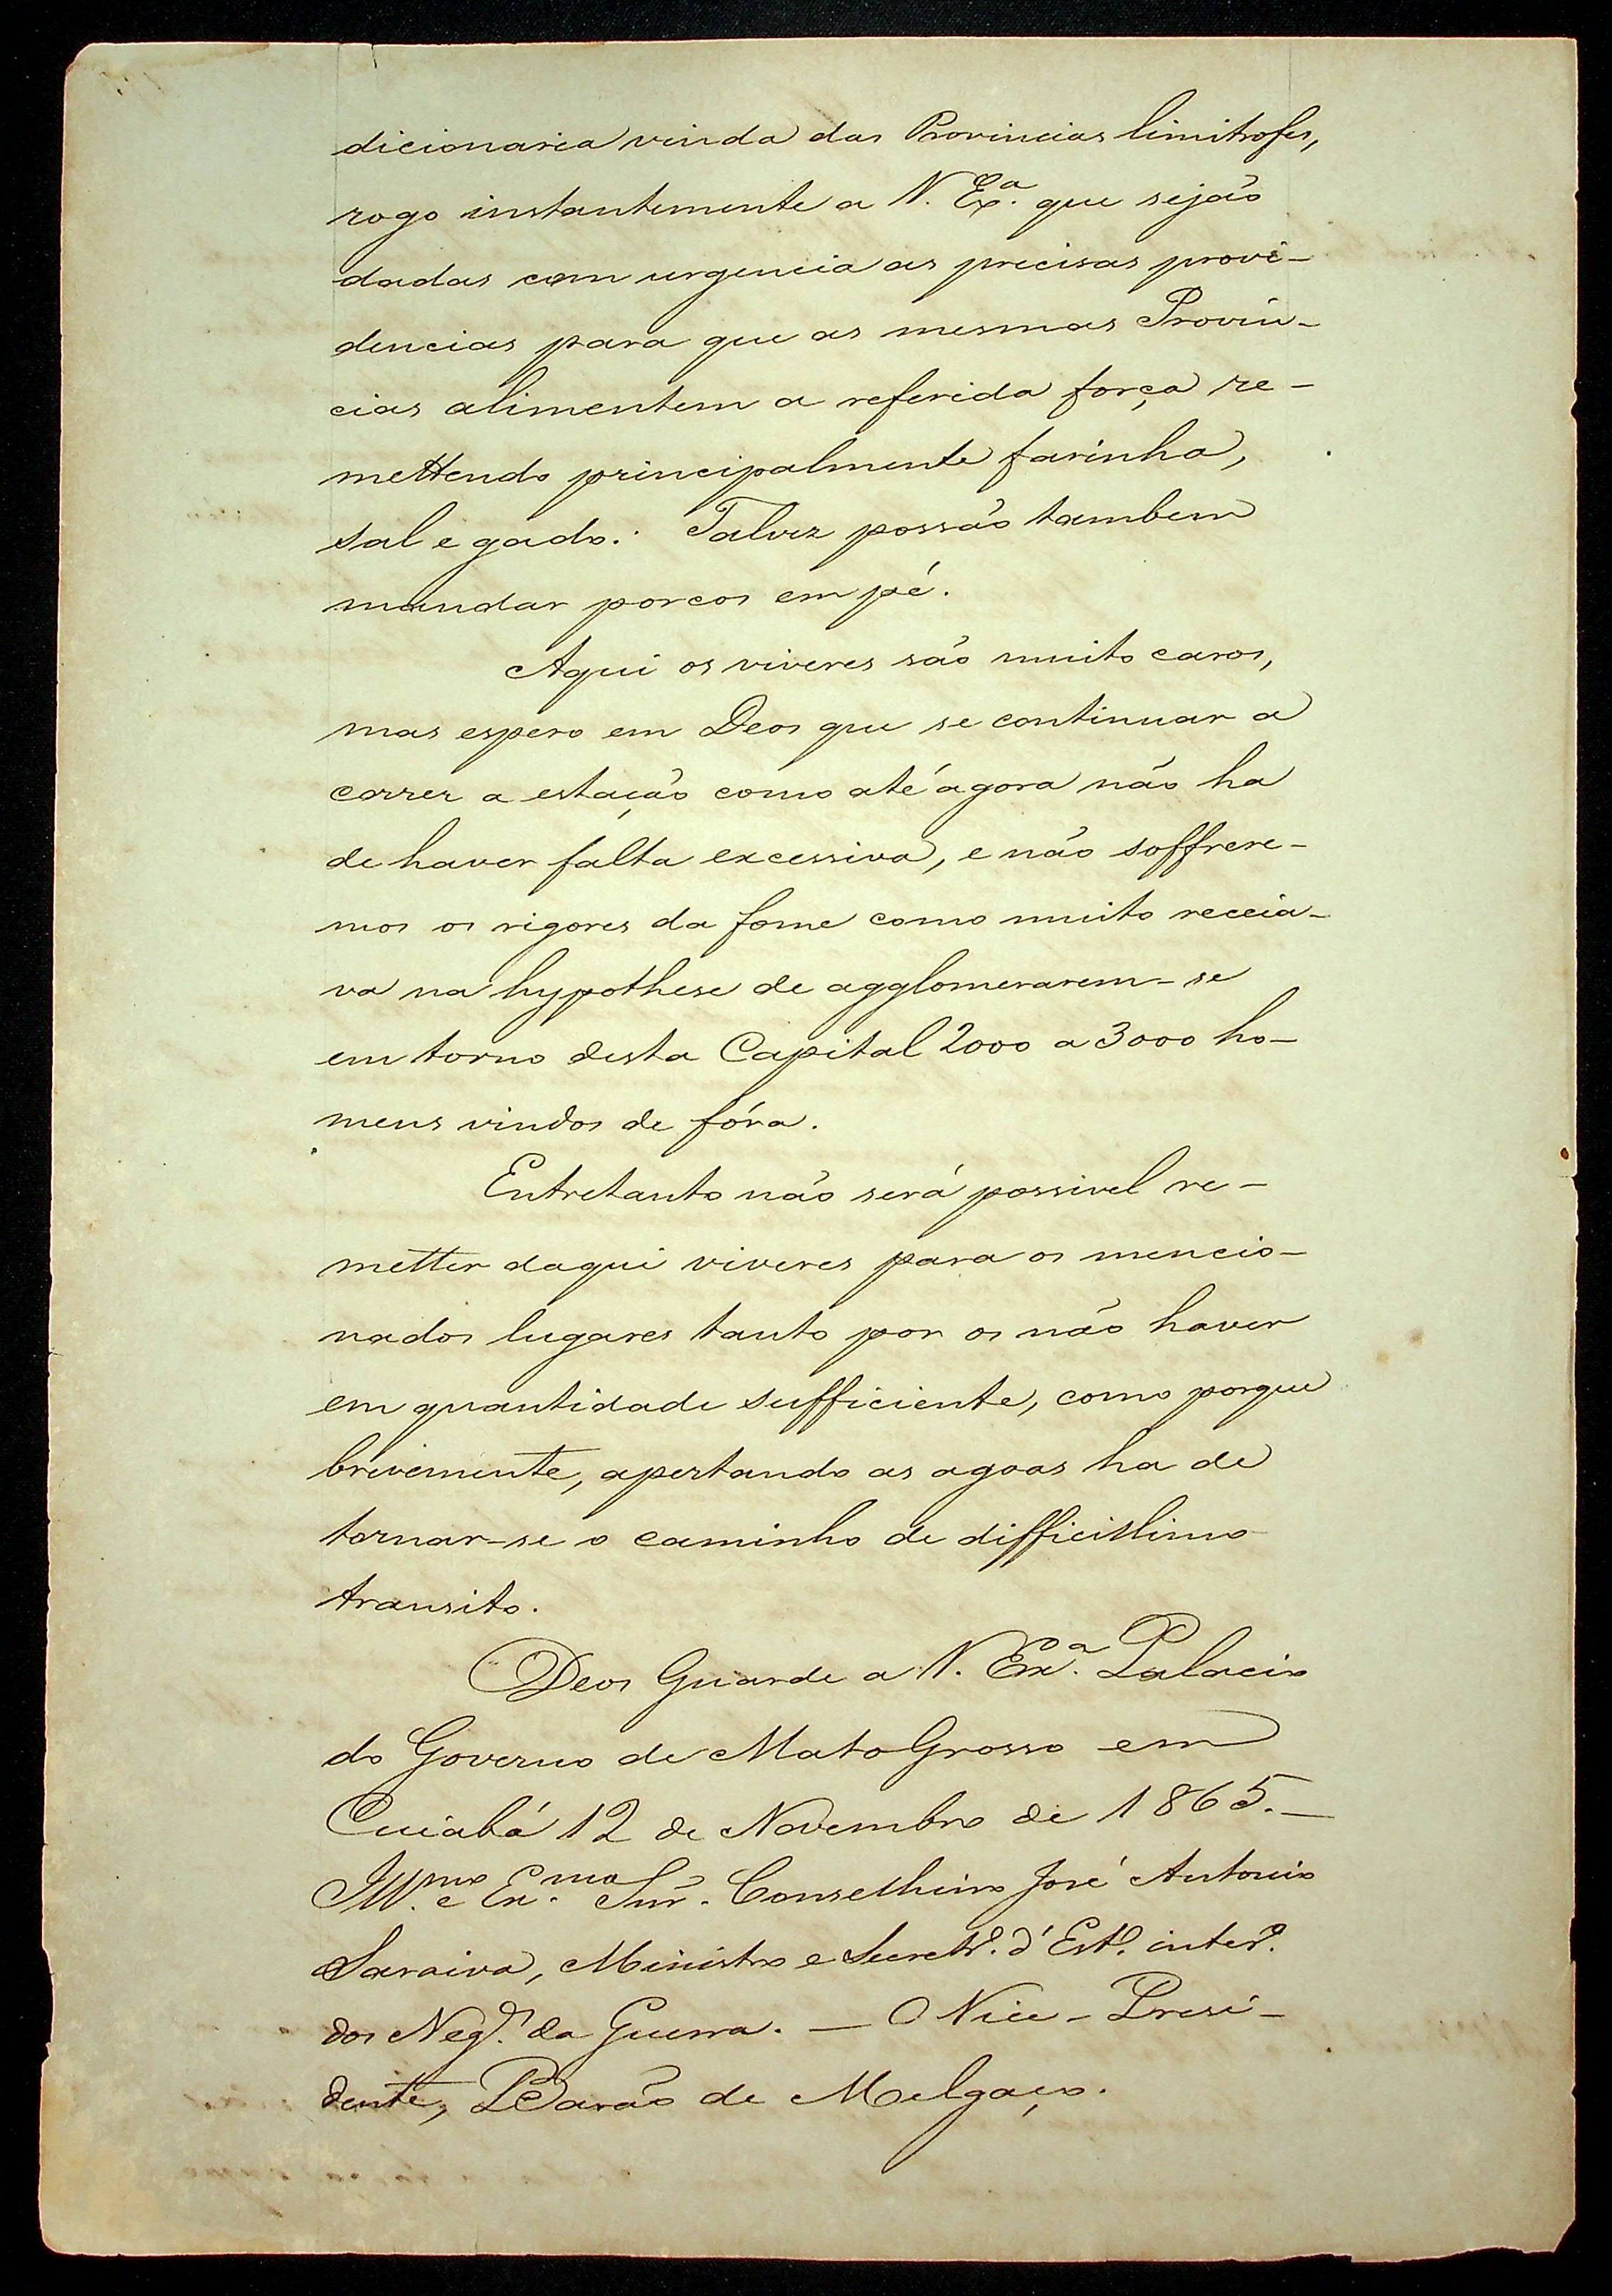 dicionaria vinda das Provincias limitrofes,
rogo instantemente a V. Exª. que sejão
dadas com urgencia as precisas provi-
dencias para que as mesmas Provin-
cias alimentem a referida força re-
mettendo principalmente farinha,
sal e gado. Talvez possão tambem
mandar porcos em pé.
Aqui os viveres são muito caros,
mas espero em Deos que se continuar a
correr a estação como até agora não ha
de haver falta excessiva, e não soffrere-
mos os rigores da fome como muito receia-
va na hypothese de agglomerarem-se
em torno desta Capital 2000 a 3000 ho-
mens vindos de fóra.
Entretanto não será possivel re-
metter daqui viveres para os mencio-
nados lugares tanto por os não haver
em quantidade sufficiente, como porque
brevemente, apertando as agoas ha de
tornar-se o caminho de difficillimo
transito.
Deos Guarde a V. Exª. Palacio
do Governo de Mato Grosso em
Cuiabá 12 de Novembro de 1865. —
Illmo. e Exmo. Snr. Conselheiro José Antonio
Saraiva, Ministro e Secretrº. d'Estº. interº.
dos Negs. da Guerra. — O Vice-Presi-
dente, Barão de Melgaço.